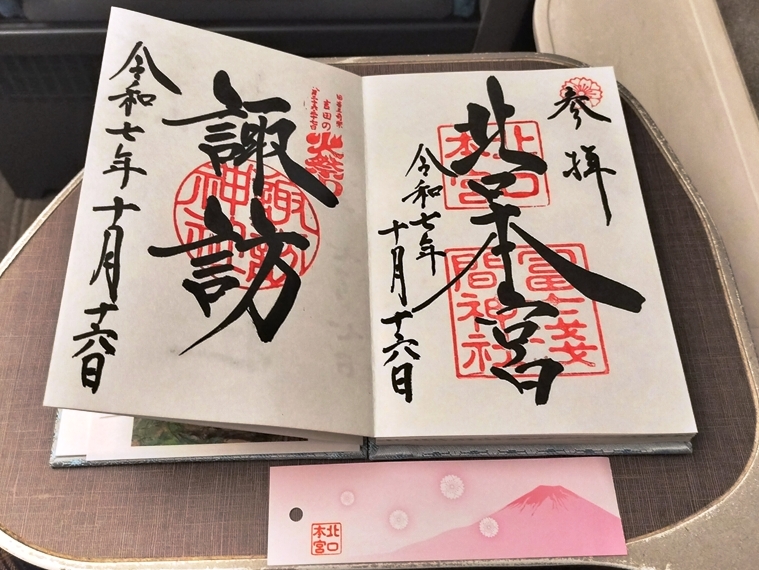 参拝
北口本宮
北口本宮
冨士淺間神社
令和七年
十月十六日
吉田の
火祭
諏訪
諏訪神社
令和七年十月十六日
北口本宮